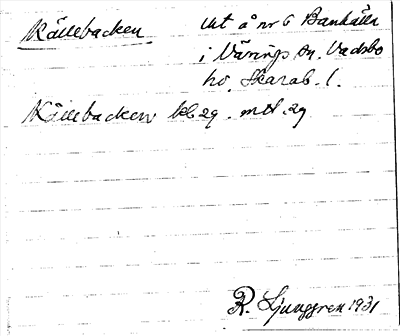 Källebacken
Utj å nr 6 Bankälla
i Värings sn. Vadsbo
hd. Skarab. l.
Källebacken kb 29. mtl. 29
R. Ljunggren 1931